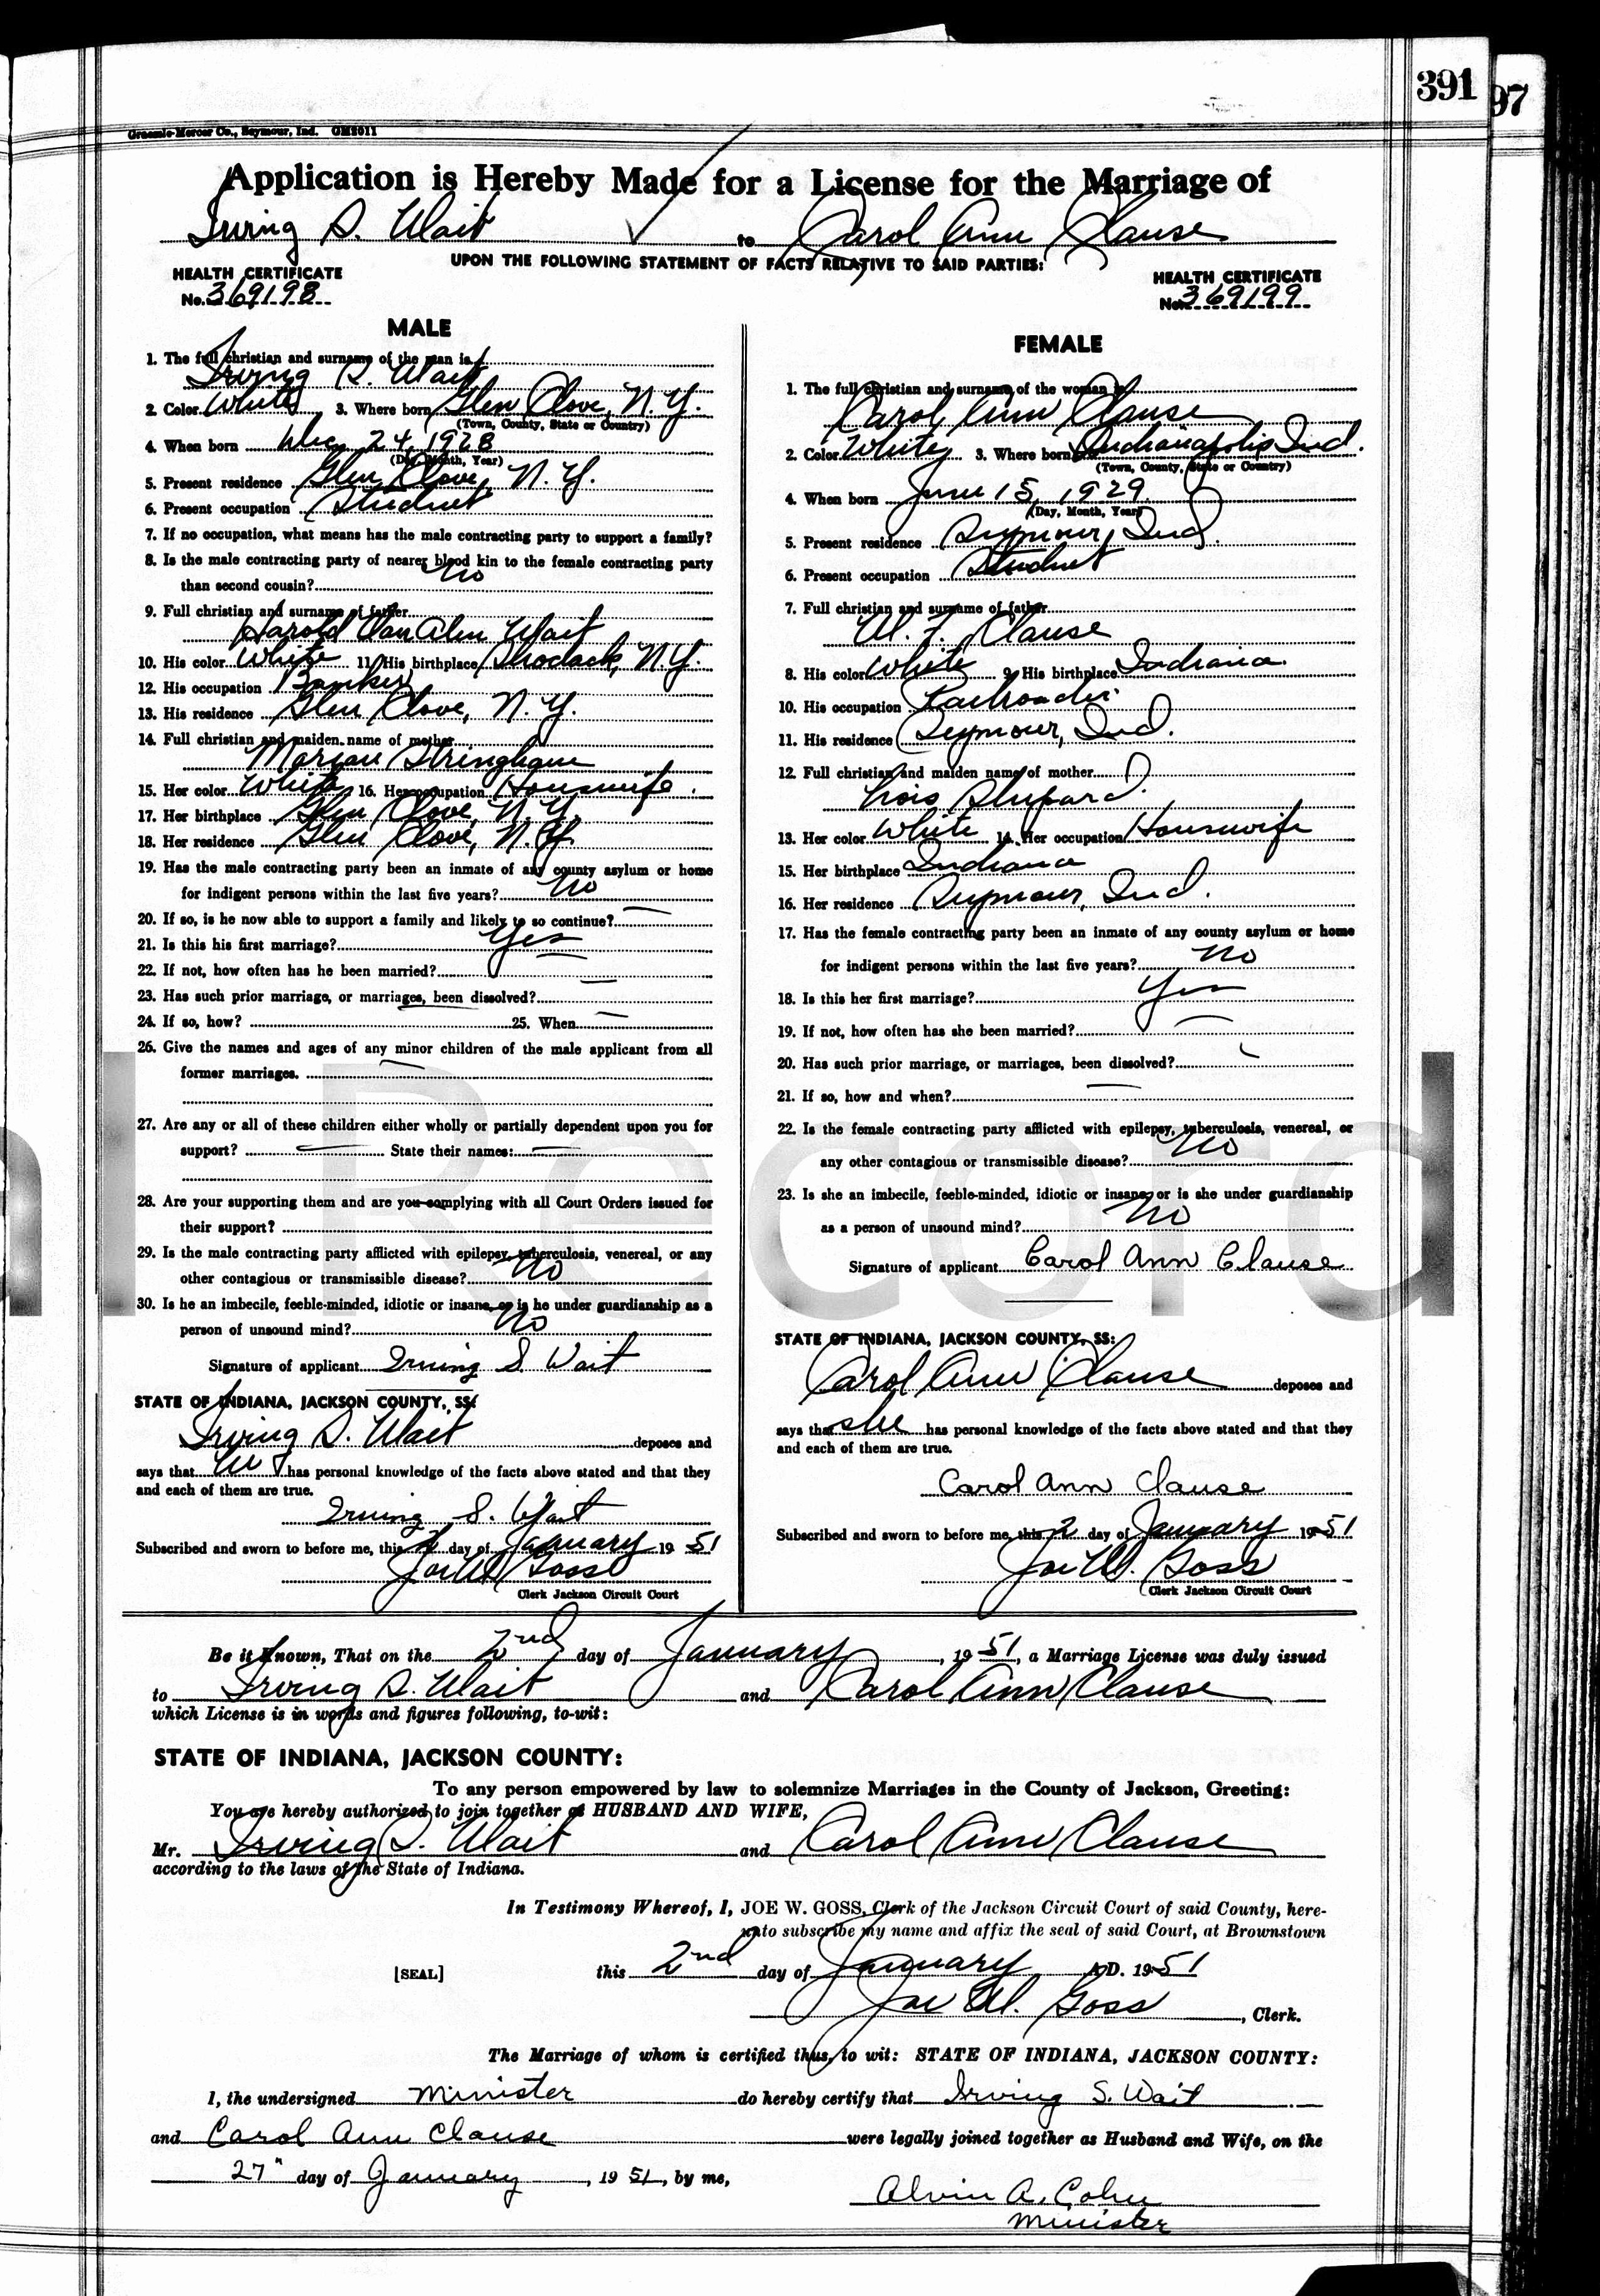 391
97
Graessle-Mercer Co., Seymour, Ind. GM2011
Application is Hereby Made for a License for the Marriage of
Irving S. Wait to Carol Ann Clause
UPON THE FOLLOWING STATEMENT OF FACTS RELATIVE TO SAID PARTIES:
HEALTH CERTIFICATE
No. 369198
HEALTH CERTIFICATE
No. 369199
MALE
1. The full christian and surname of the man is
Irving S. Wait
2. Color White 3. Where born Glen Cove, N.Y.
(Town, County, State or Country)
4. When born Dec 24, 1928
(Day, Month, Year)
5. Present residence Glen Cove, N.Y.
6. Present occupation Student
7. If no occupation, what means has the male contracting party to support a family?
8. Is the male contracting party of nearer blood kin to the female contracting party
than second cousin? No
9. Full christian and surname of father
Harold Van Alen Wait
10. His color White 11. His birthplace Shodack, N.Y.
12. His occupation Banker
13. His residence Glen Cove, N.Y.
14. Full christian and maiden name of mother
Marian Stringham
15. Her color White 16. Her occupation Housewife.
17. Her birthplace Glen Cove, N.Y.
18. Her residence Glen Cove, N.Y.
19. Has the male contracting party been an inmate of any county asylum or home
for indigent persons within the last five years? No
20. If so, is he now able to support a family and likely to so continue? —
21. Is this his first marriage? Yes
22. If not, how often has he been married? —
23. Has such prior marriage, or marriages, been dissolved? —
24. If so, how? — 25. When —
26. Give the names and ages of any minor children of the male applicant from all
former marriages. —
27. Are any or all of these children either wholly or partially dependent upon you for
support? — State their names: —
28. Are your supporting them and are you complying with all Court Orders issued for
their support?
29. Is the male contracting party afflicted with epilepsy, tuberculosis, venereal, or any
other contagious or transmissible disease? No
30. Is he an imbecile, feeble-minded, idiotic or insane, or is he under guardianship as a
person of unsound mind? No
Signature of applicant Irving S. Wait
STATE OF INDIANA, JACKSON COUNTY, SS:
Irving S. Wait deposes and
says that he has personal knowledge of the facts above stated and that they
and each of them are true.
Irving S. Wait
Subscribed and sworn to before me, this 2 day of January 19 51
Joe W. Goss
Clerk Jackson Circuit Court
FEMALE
1. The full christian and surname of the woman is
Carol Ann Clause
2. Color White 3. Where born Indianapolis Ind.
(Town, County, State or Country)
4. When born June 15, 1929
(Day, Month, Year)
5. Present residence Seymour, Ind.
6. Present occupation Student
7. Full christian and surname of father
W. F. Clause
8. His color White 9. His birthplace Indiana
10. His occupation Railroader
11. His residence Seymour, Ind.
12. Full christian and maiden name of mother
Lois Shepard
13. Her color White 14. Her occupation Housewife
15. Her birthplace Indiana
16. Her residence Seymour, Ind.
17. Has the female contracting party been an inmate of any county asylum or home
for indigent persons within the last five years? No
18. Is this her first marriage? Yes
19. If not, how often has she been married? —
20. Has such prior marriage, or marriages, been dissolved?
21. If so, how and when? —
22. Is the female contracting party afflicted with epilepsy, tuberculosis, venereal, or
any other contagious or transmissible disease? No
23. Is she an imbecile, feeble-minded, idiotic or insane, or is she under guardianship
as a person of unsound mind? No
Signature of applicant Carol Ann Clause
STATE OF INDIANA, JACKSON COUNTY, SS:
Carol Ann Clause deposes and
says that she has personal knowledge of the facts above stated and that they
and each of them are true.
Carol Ann Clause
Subscribed and sworn to before me, this 2 day of January 19 51
Joe W. Goss
Clerk Jackson Circuit Court
Be it Known, That on the 2nd day of January, 19 51, a Marriage License was duly issued
to Irving S. Wait and Carol Ann Clause
which License is in words and figures following, to-wit:
STATE OF INDIANA, JACKSON COUNTY:
To any person empowered by law to solemnize Marriages in the County of Jackson, Greeting:
You are hereby authorized to join together as HUSBAND AND WIFE,
Mr. Irving S. Wait and Carol Ann Clause
according to the laws of the State of Indiana.
In Testimony Whereof, I, JOE W. GOSS, Clerk of the Jackson Circuit Court of said County, here-
unto subscribe my name and affix the seal of said Court, at Brownstown
[SEAL] this 2nd day of January A.D. 19 51
Joe W. Goss, Clerk.
The Marriage of whom is certified thus, to wit: STATE OF INDIANA, JACKSON COUNTY:
I, the undersigned minister do hereby certify that Irving S. Wait
and Carol Ann Clause were legally joined together as Husband and Wife, on the
27" day of January, 19 51, by me,
Alvin A. Cohn
Minister
l Record